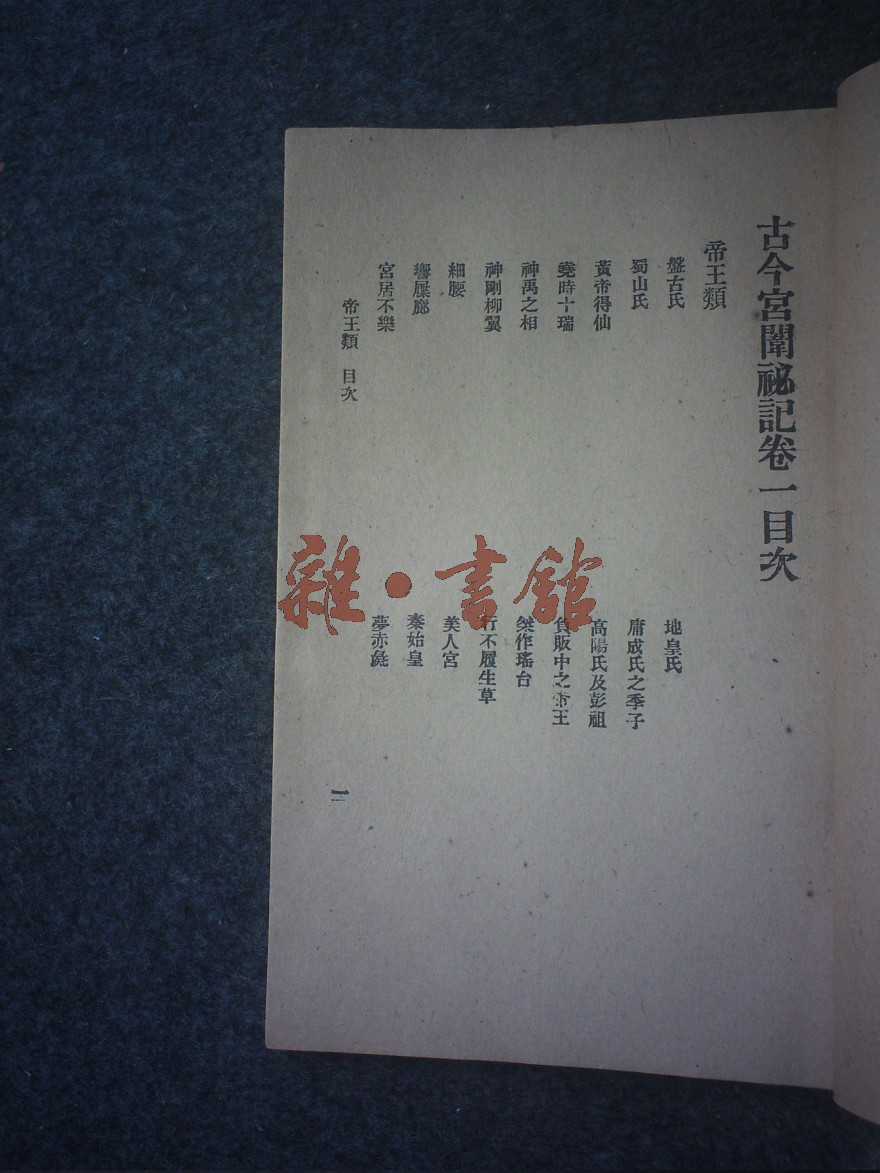 古今宮闈祕記卷一目次
帝王類
盤古氏
地皇氏
蜀山氏
庸成氏之季子
黃帝得仙
高陽氏及彭祖
堯時十瑞
負販中之帝王
神禹之相
桀作瑤台
神剛柳翼
行不履生草
細腰
美人宮
響屧廊
秦始皇
宮居不樂
夢赤彘
帝王類 目次
一
雜·書館